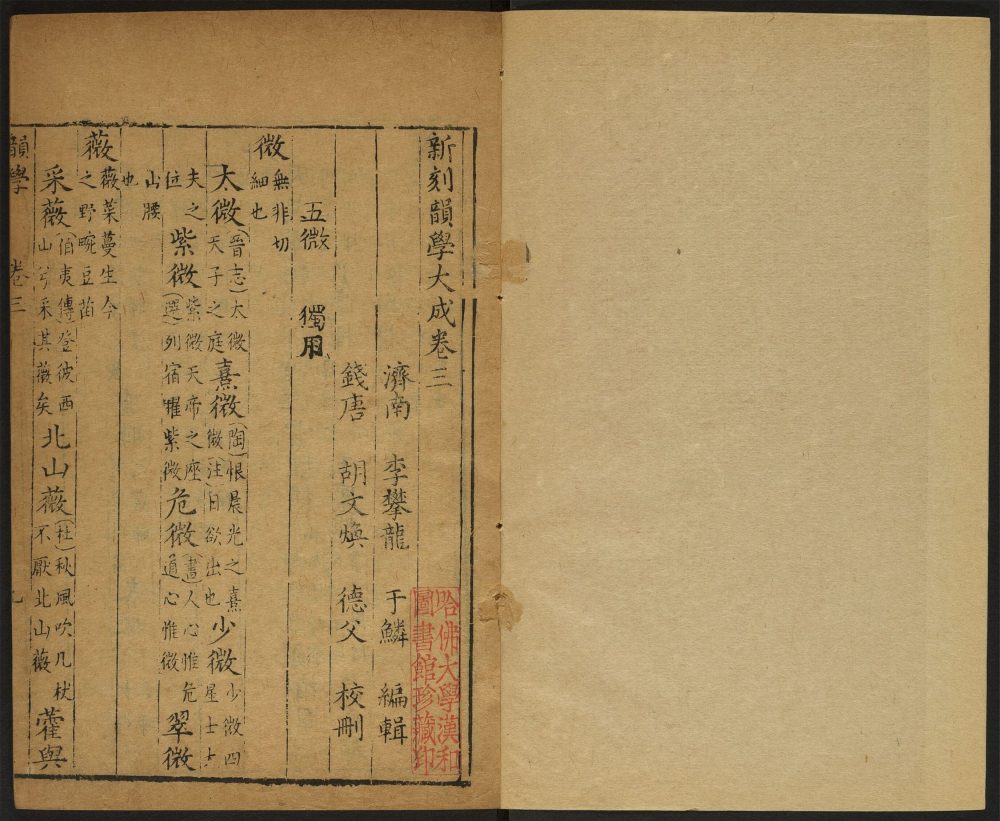 新刻韻學大成卷三
濟南 李攀龍 于鱗 編輯
錢唐 胡文煥 德父 校刪
五微 獨用
微無非切細也
太微(晉志)太微天子之庭熹微(陶)恨晨光之熹微(注)日欲出也少微少微四星士大
夫之位紫微紫微天帝之座(選)列宿曜紫微危微(書)人心惟危道心惟微翠微
山腰也
薇薇菜蔓生今之野豌豆苗
采薇(伯夷傳)登彼西山兮采其薇矣北山薇(杜)秋風吹几杖不厭北山薇藿與
韻學 卷三
哈佛大學漢和圖書館珍藏印